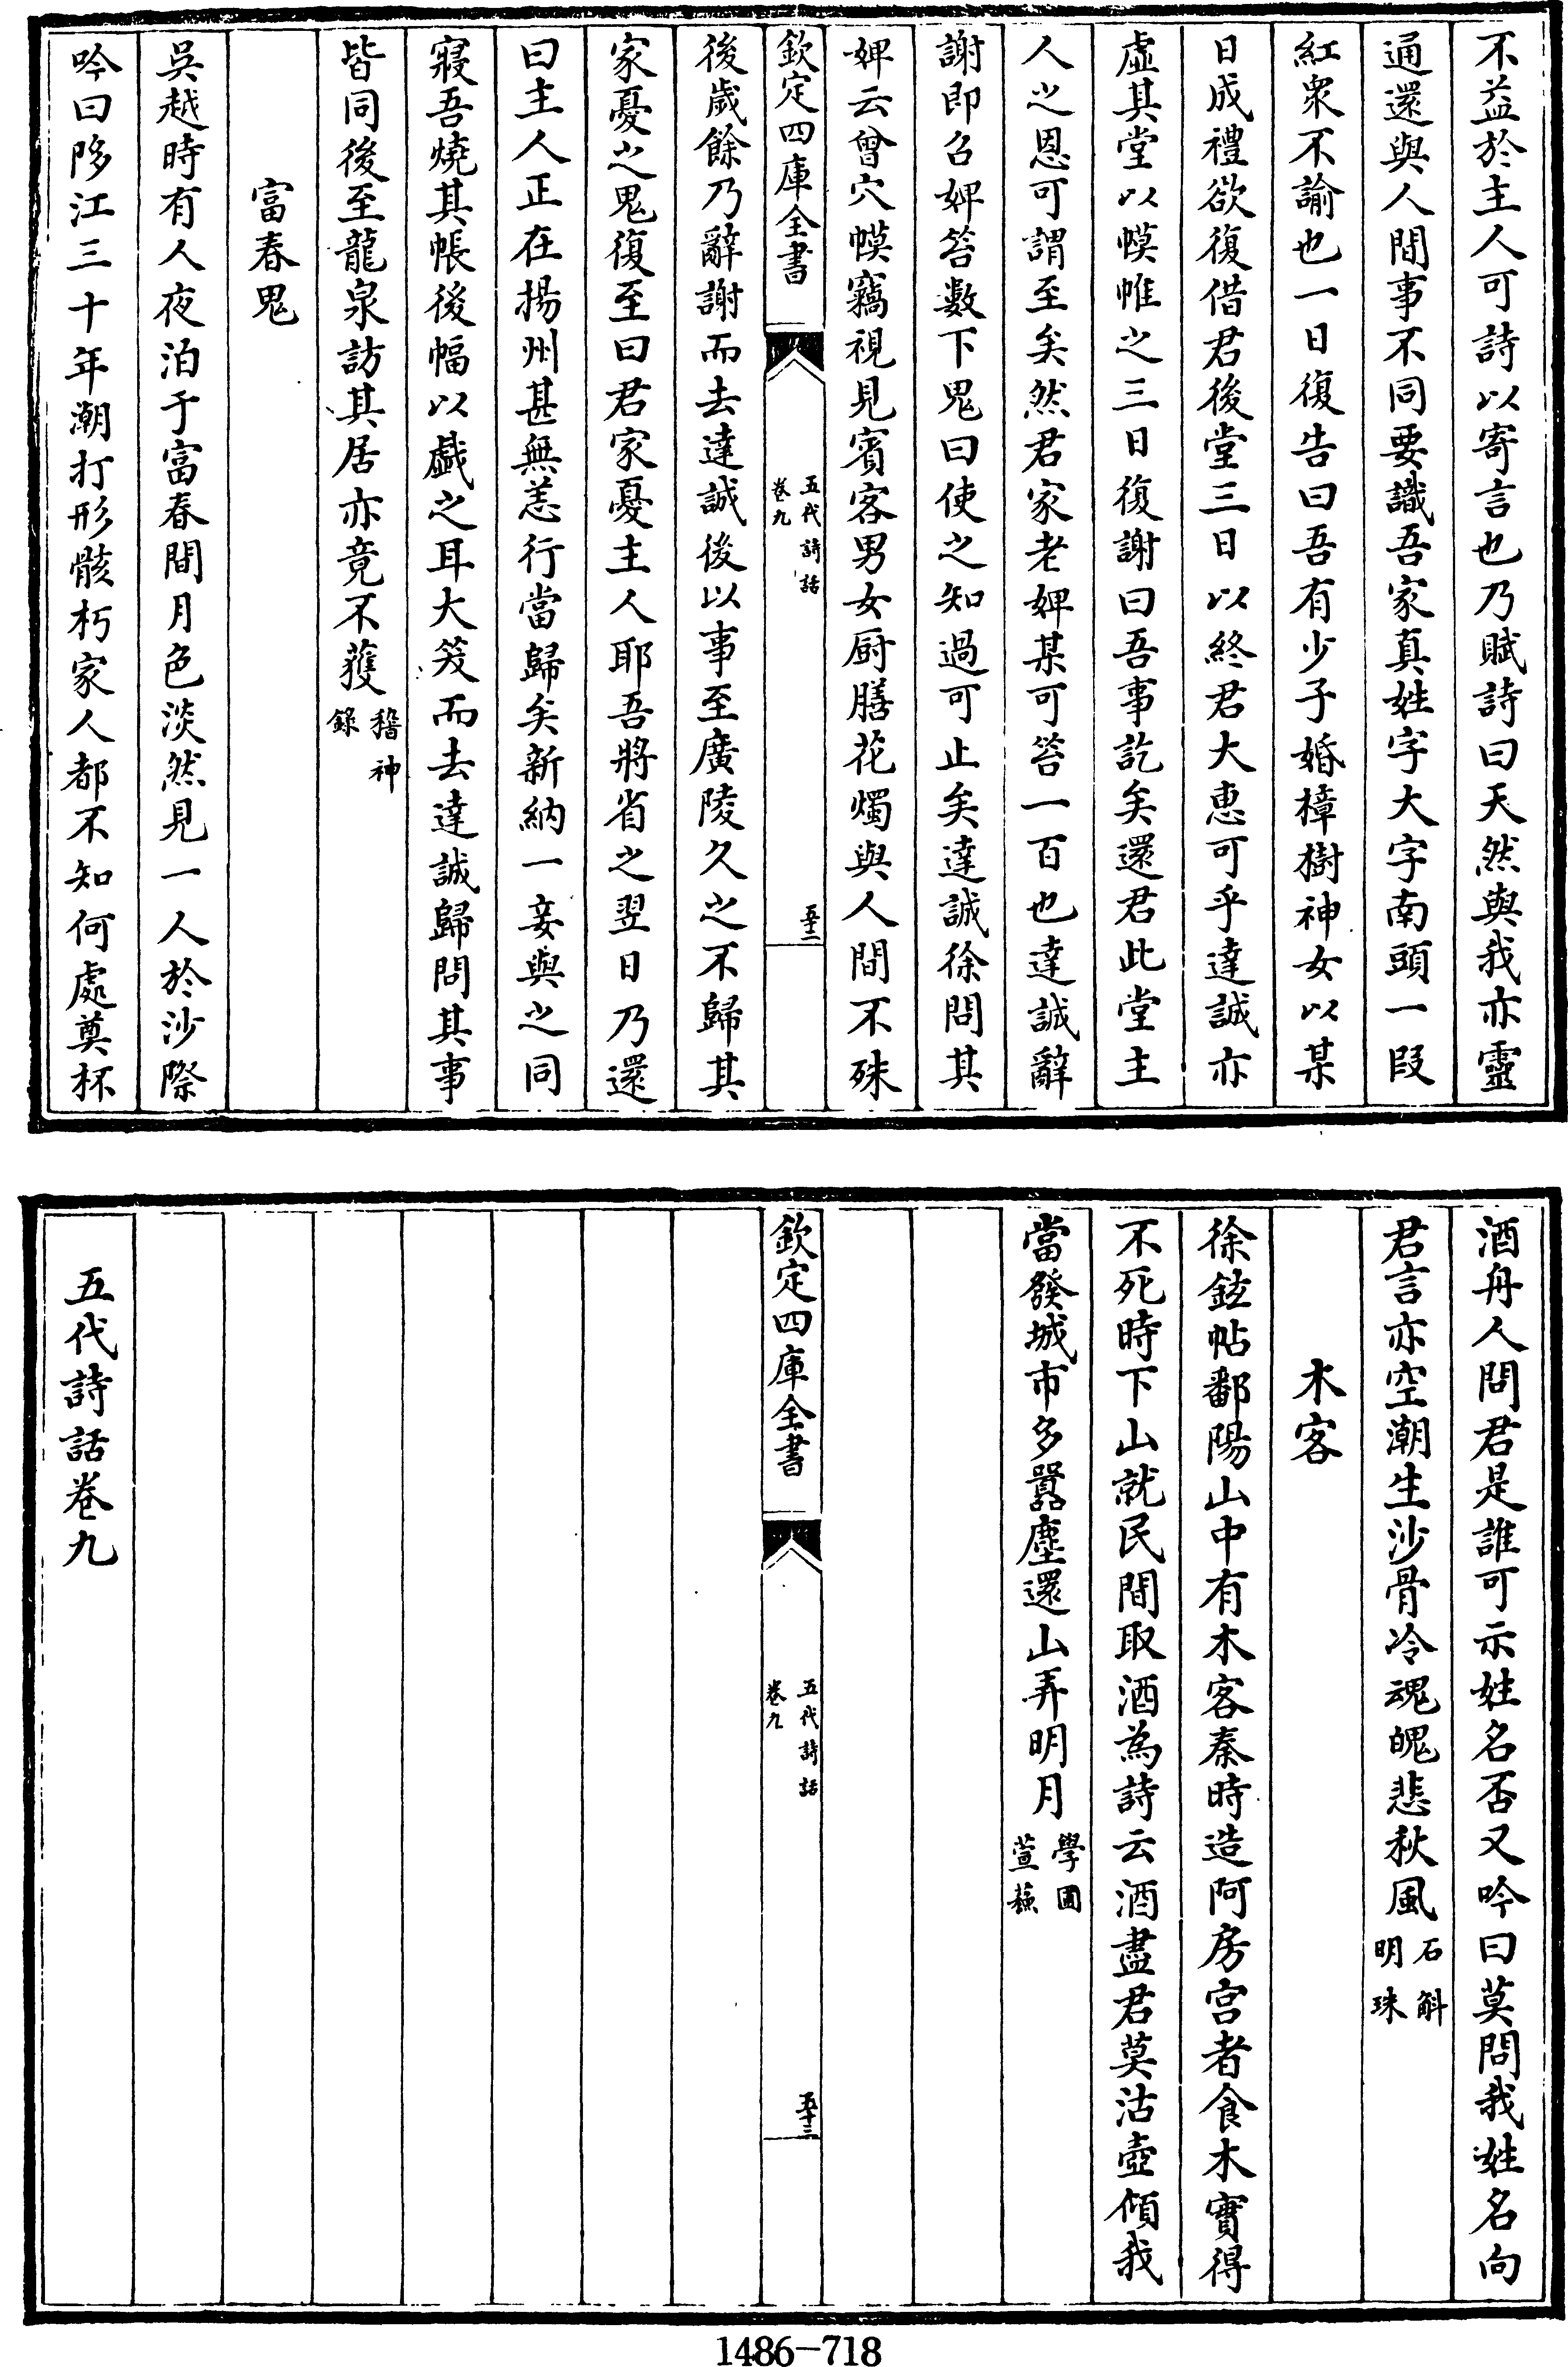 不益於主人可詩以寄言也乃賦詩曰天然與我亦靈
通還與人間事不同要識吾家真姓字大字南頭一段
紅衆不諭也一日復告曰吾有少子婚樟樹神女以某
日成禮欲復借君後堂三日以終君大惠可乎達誠亦
虛其堂以幙帷之三日復謝曰吾事訖矣還君此堂主
人之恩可謂至矣然君家老婢某可笞一百也達誠辭
謝即召婢笞數下鬼曰使之知過可止矣達誠徐問其
婢云曾穴幙竊視見賓客男女厨膳花燭與人間不殊
欽定四庫全書
五代詩話
卷九
五十二
後歲餘乃辭謝而去達誠後以事至廣陵久之不歸其
家憂之鬼復至曰君家憂主人耶吾將省之翌日乃還
曰主人正在揚州甚無恙行當歸矣新納一妾與之同
寢吾燒其帳後幅以戲之耳大笑而去達誠歸問其事
皆同後至龍泉訪其居亦竟不獲
稽神
錄
富春鬼
吳越時有人夜泊于富春間月色淡然見一人於沙際
吟曰陊江三十年潮打形骸朽家人都不知何處奠杯
酒舟人問君是誰可示姓名否又吟曰莫問我姓名向
君言亦空潮生沙骨冷魂魄悲秋風
石斛
明珠
木客
徐鉉帖鄱陽山中有木客秦時造阿房宫者食木實得
不死時下山就民間取酒為詩云酒盡君莫沽壺傾我
當發城市多囂塵還山弄明月
學圃
萱蘇
欽定四庫全書
五代詩話
卷九
五十三
五代詩話卷九
1486-718